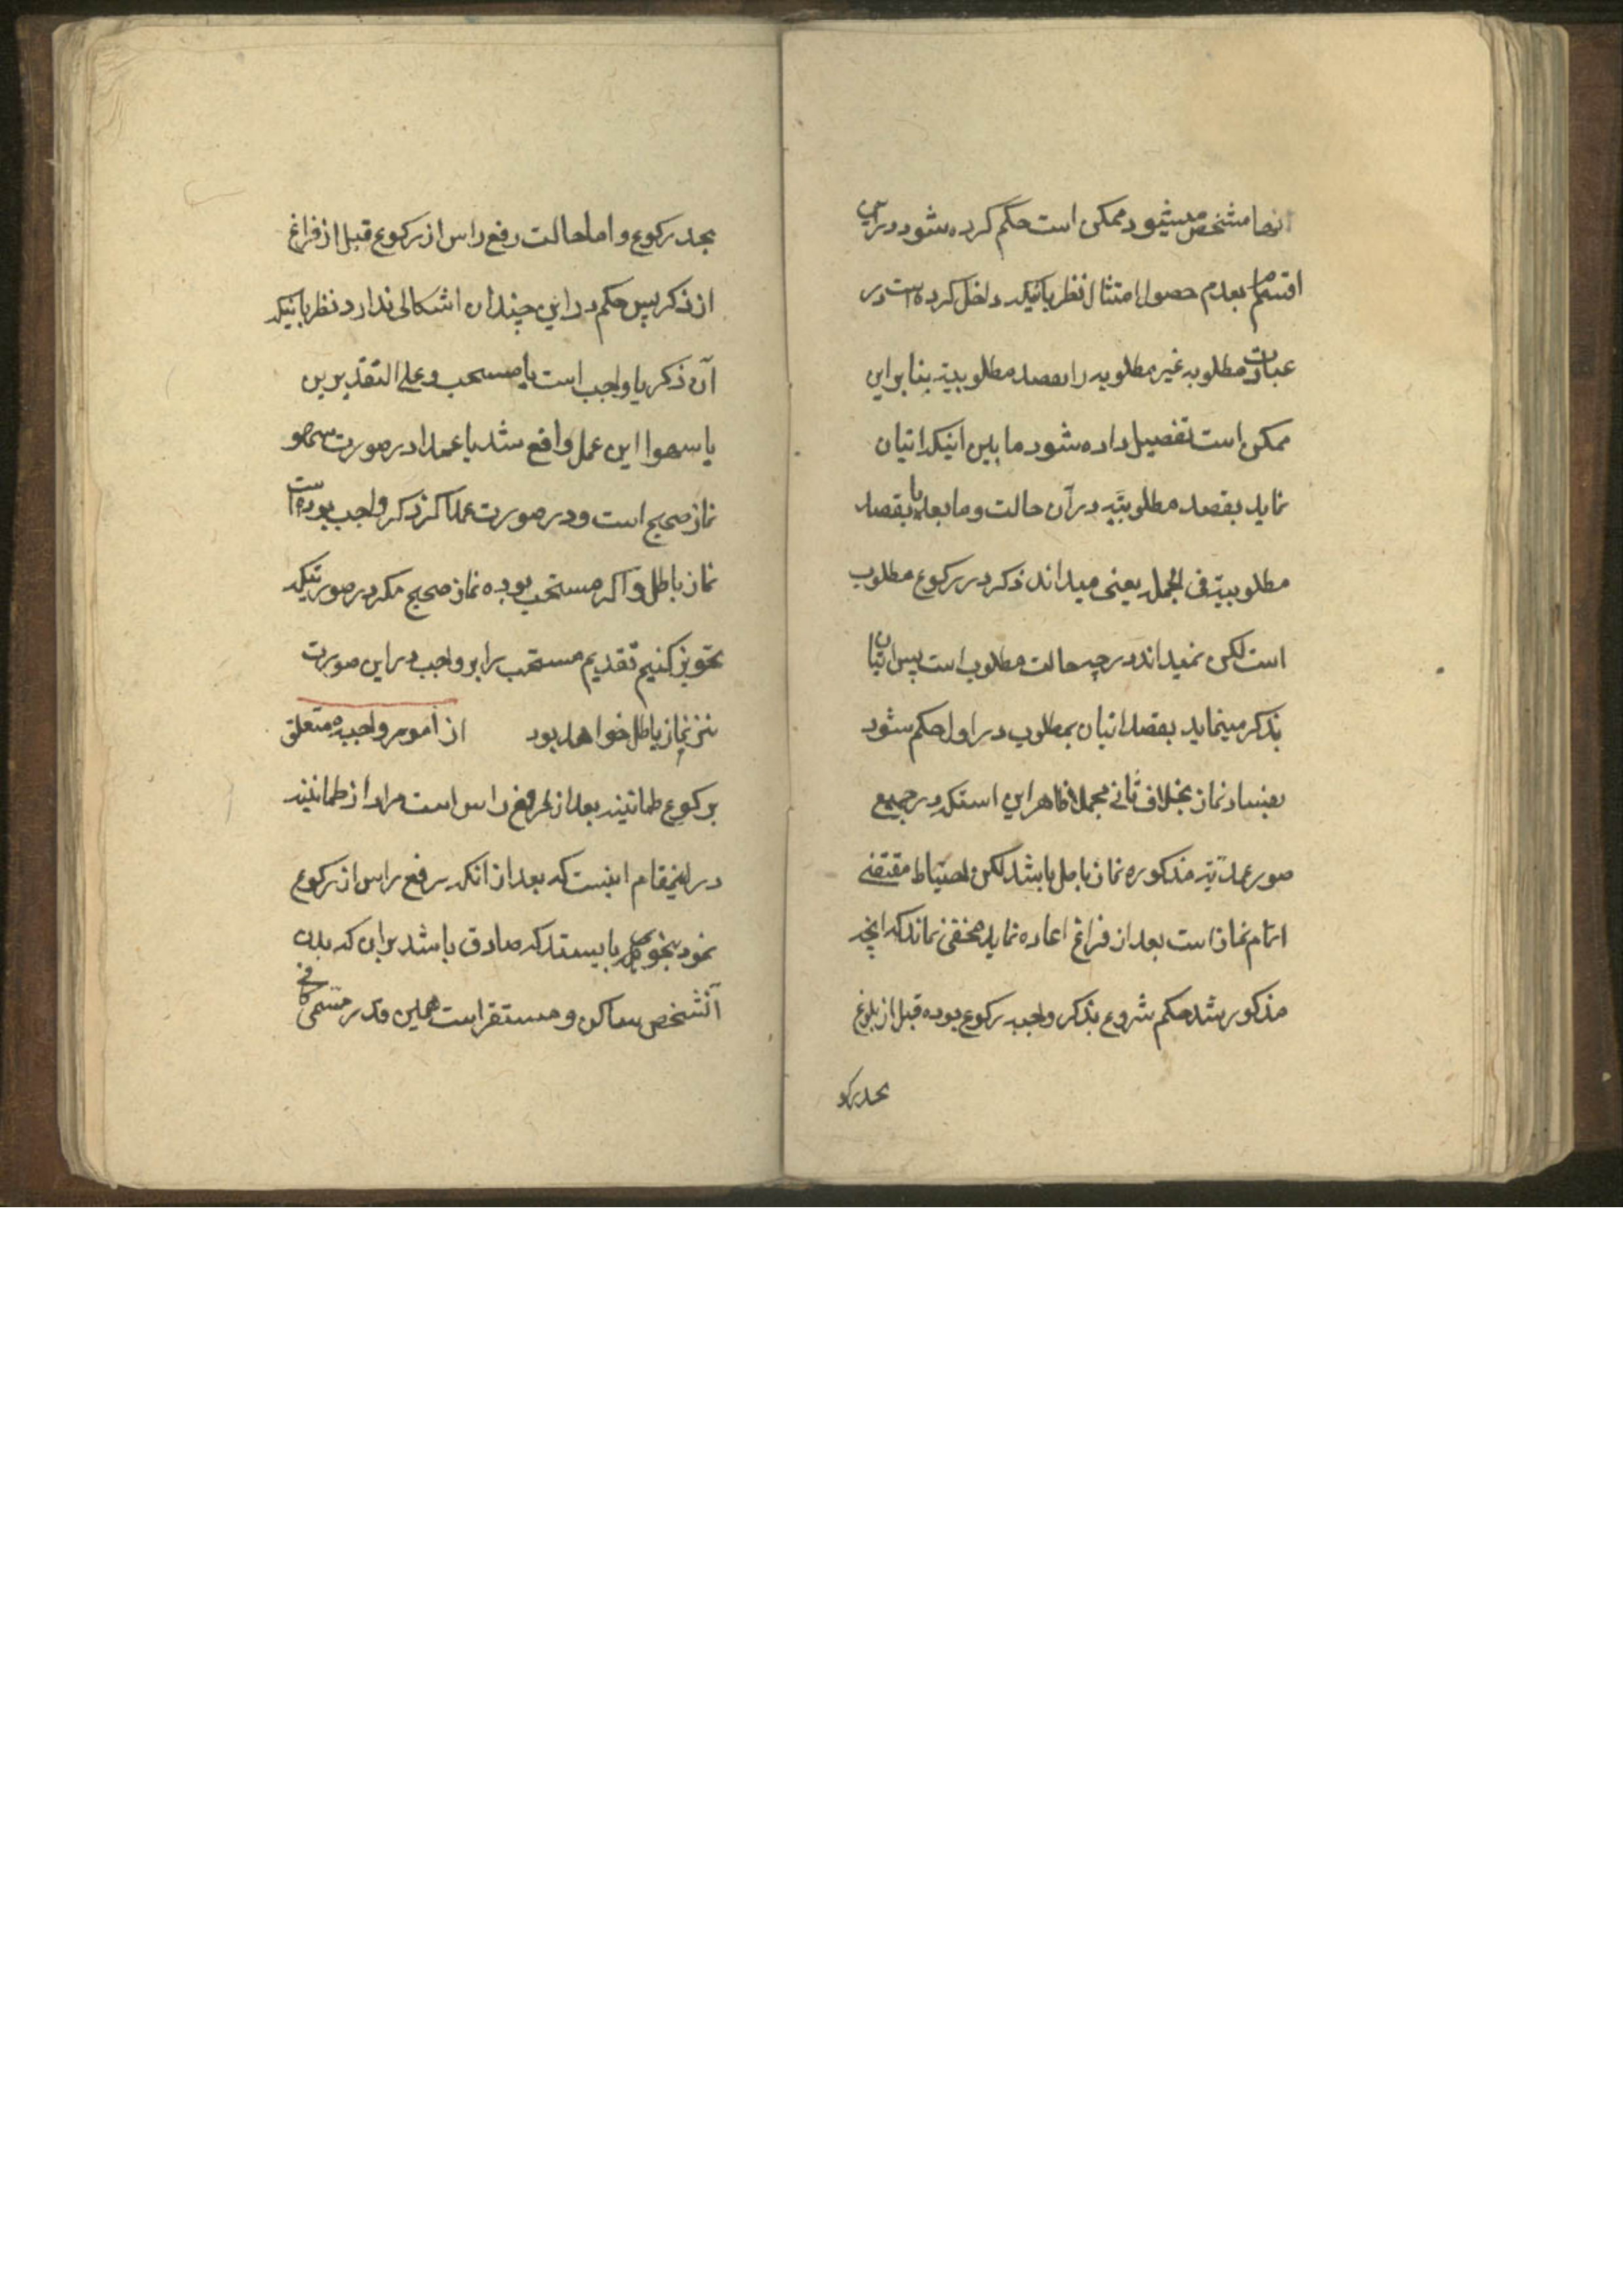 انها مشخص میشود ممکن است حکم کرده شود در این
اقسام بعدم حصول امتثال نظر باینکه داخل کرده است در
عبادت مطلوبه غیر مطلوبه را بقصد مطلوبیة بنابراین
ممکن است تفصیل داده شود ما بین اینکه اتیان
نماید بقصد مطلوبیة در آن حالت و ما بعد یا بقصد
مطلوبیة فی الجمله یعنی میداند ذکر در رکوع مطلوب
است لکن نمیداند در چه حالت مطلوب است پس اتیان
بذکر مینماید بقصد اتیان بمطلوب در اول حکم شود
بفساد نماز بخلاف ثانی مجملا ظاهر این استکه در جمیع
صور عمدیّة مذکوره نماز باطل باشد لکن احتیاط مقتضی
اتمام نماز است بعد از فراغ اعاده نماید مخفی نماند که انچه
مذکور شد حکم شروع بذکر واجب رکوع بوده قبل از بلوغ
بحد رکو
بحد رکوع و اما حالت رفع راس از رکوع قبل از فراغ
از ذکر پس حکم در این چندان اشکالی ندارد نظر باینکه
آن ذکر یا واجب است یا مستحب و علی التقدیرین
یا سهوا این عمل واقع شد یا عمدا در صورت سهو
نماز صحیح است و در صورت عمد اگر ذکر واجب بوده است
نماز باطل و اگر مستحب بوده نماز صحیح مگر در صورتیکه
تجویز کنیم تقدیم مستحب را بر واجب در این صورت
نیز نماز باطل خواهد بود از امور واجبه متعلق
برکوع طمانینه بعد از رفع راس است مراد از طمانینه
در اینمقام اینست که بعد از انکه رفع راس از رکوع
نمود بنحوی بایستد که صادق باشد بران که بدن
آنشخص ساکن و مستقر است همین قدر مسمی کافی